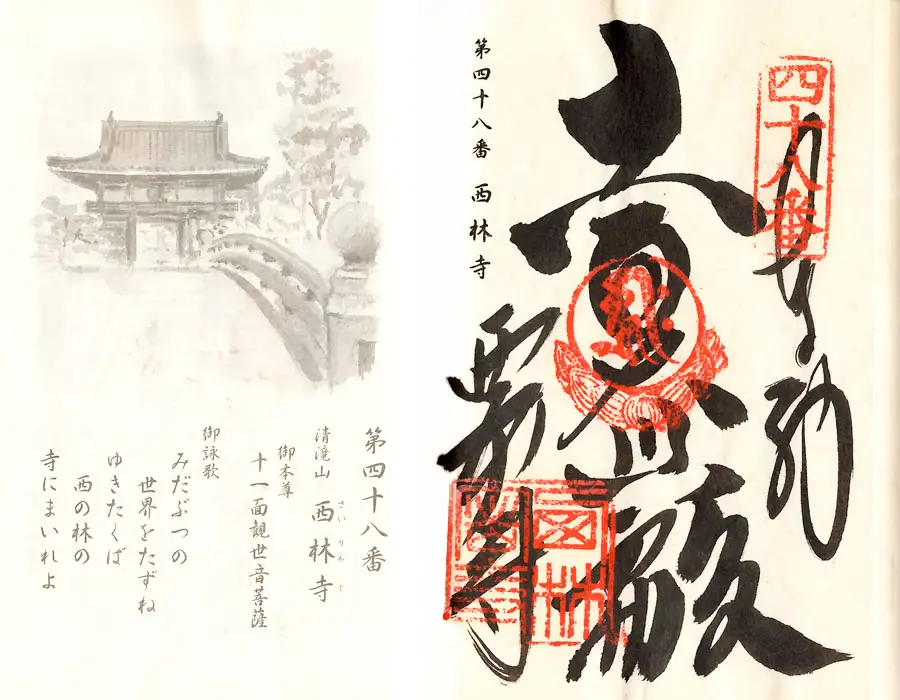 四十八番
奉納
西林寺
第四十八番 西林寺
第四十八番
清滝山 西林寺
さいりんじ
御本尊
十一面観世音菩薩
御詠歌
みだぶつの
世界をたずね
ゆきたくば
西の林の
寺にまいれよ